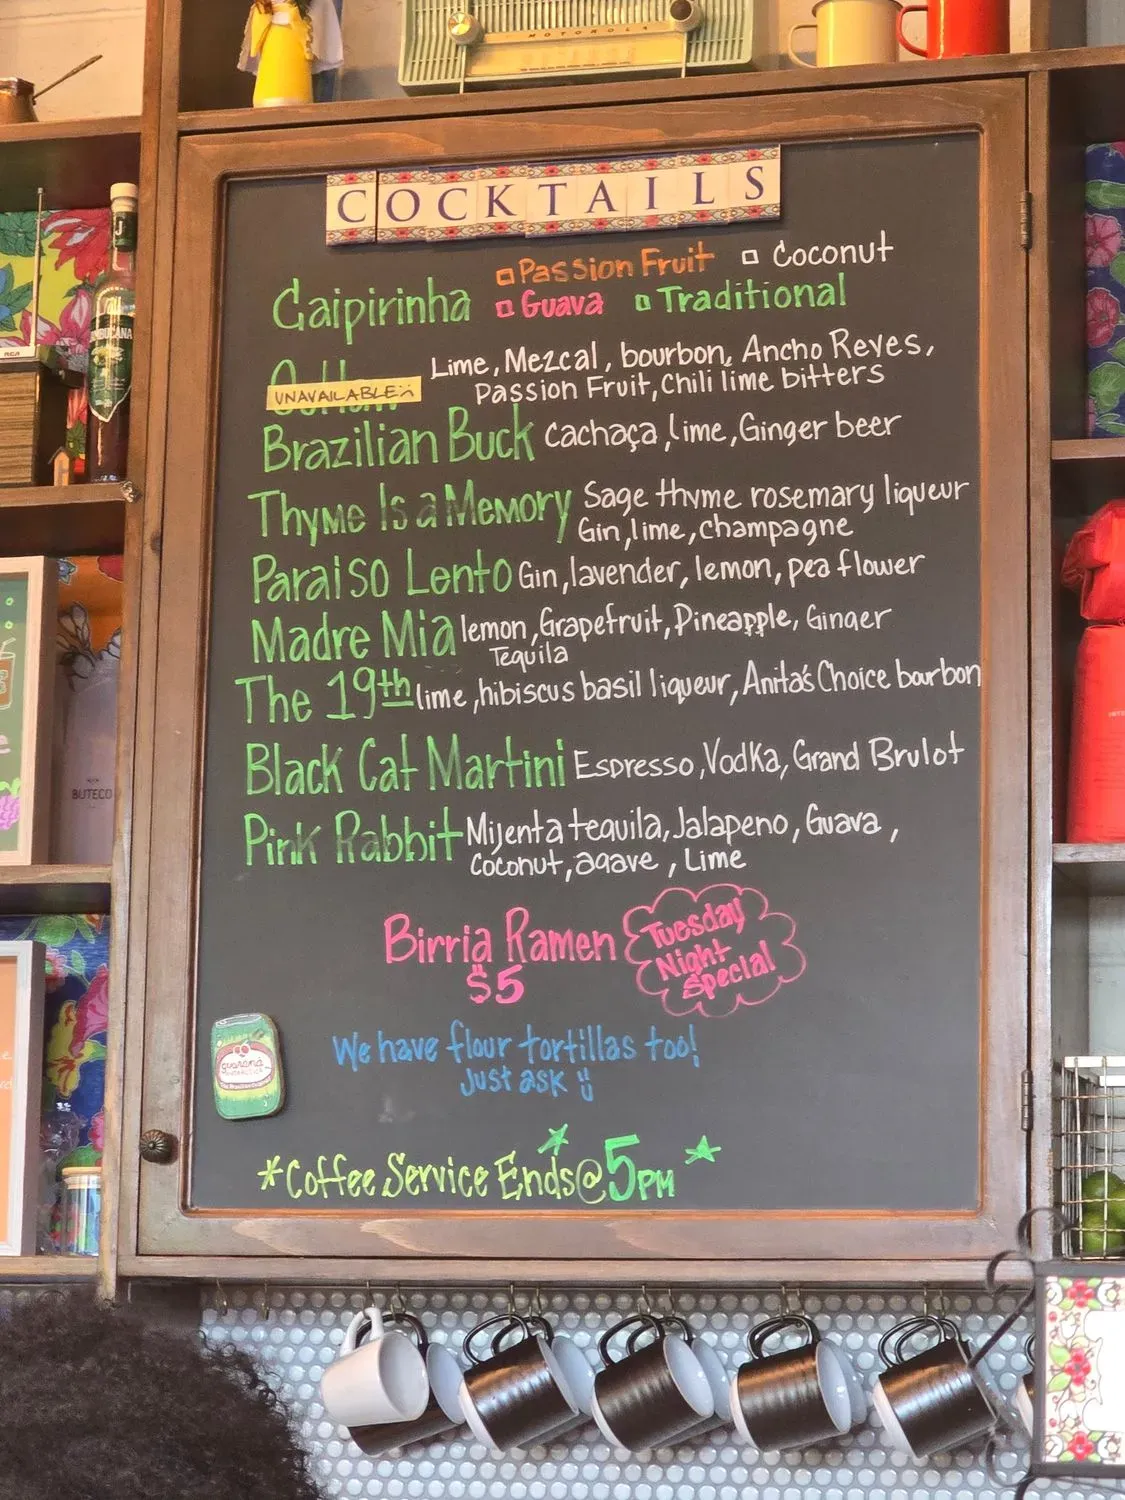 MOTOROLA
COCKTAILS
Caipirinha
Passion Fruit
Coconut
Guava
Traditional
UNAVAILABLE
Lime, Mezcal, bourbon, Ancho Reyes,
Passion Fruit, Chili lime bitters
Brazilian Buck Cachaça, lime, Ginger beer
Thyme Is a Memory Sage thyme rosemary liqueur
Gin, lime, champagne
Paraiso Lento Gin, lavender, lemon, pea flower
Madre Mia lemon, Grapefruit, Pineapple, Ginger
Tequila
The 19th lime, hibiscus basil liqueur, Anita's Choice bourbon
Black Cat Martini Espresso, Vodka, Grand Brulot
Pink Rabbit Mijenta tequila, Jalapeno, Guava,
Coconut, agave, Lime
Birria Ramen
$5
Tuesday
Night
Special
We have flour tortillas too!
Just ask
guaraná
*Coffee Service Ends@5PM
RCA
BUTECO